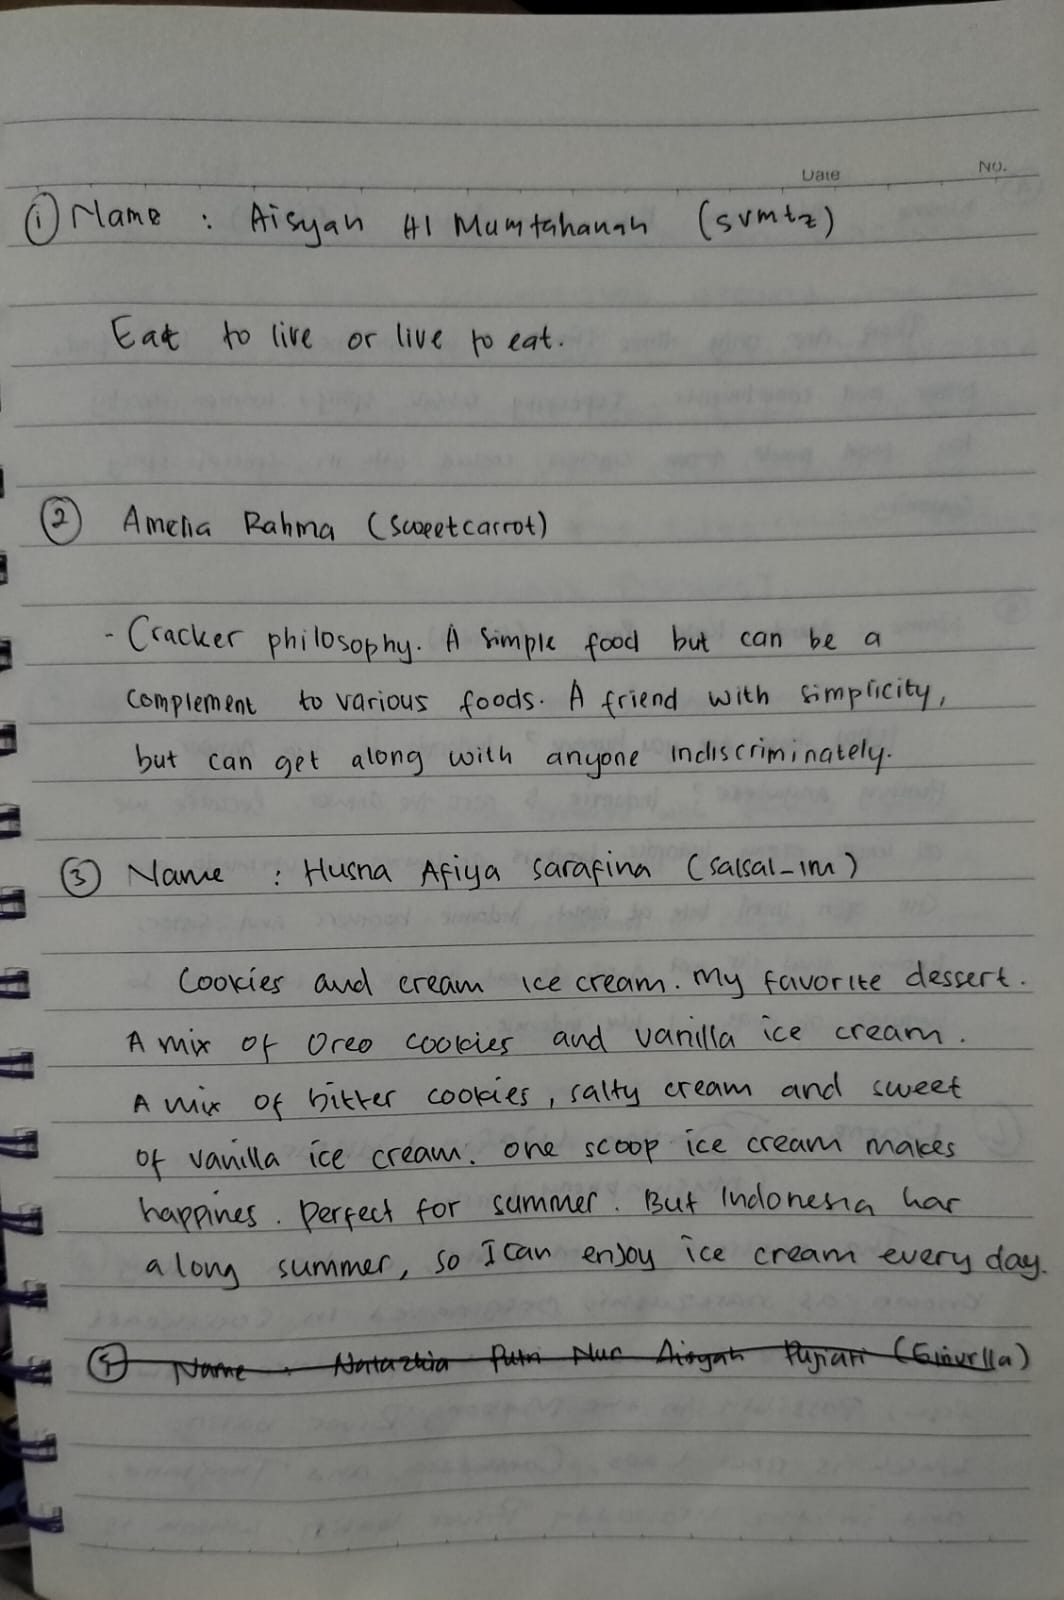 Date No.
① Name : Aisyah Al Mumtahanah (svmtz)
Eat to live or live to eat.
② Amelia Rahma (sweetcarrot)
- Cracker philosophy. A simple food but can be a
complement to various foods. A friend with simplicity,
but can get along with anyone indiscriminately.
③ Name : Husna Afiya Sarafina (salsal_im)
Cookies and cream ice cream. My favorite dessert.
A mix of Oreo cookies and vanilla ice cream.
A mix of bitter cookies, salty cream and sweet
of vanilla ice cream. one scoop ice cream makes
happines. perfect for summer. But Indonesia has
a long summer, so I can enjoy ice cream every day.
Name : Natazhia Putri Nur Aisyah Pujiati